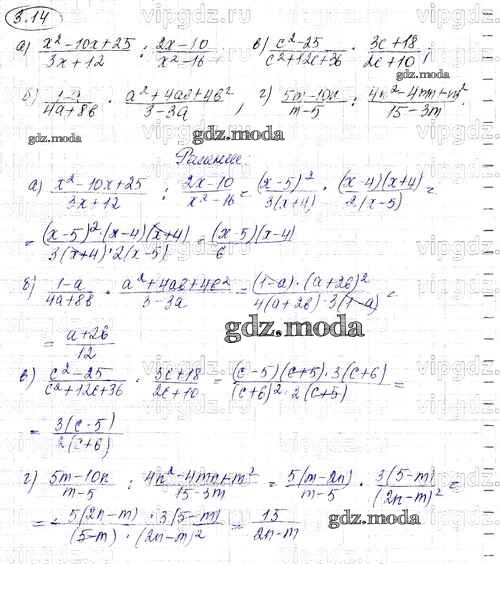 3.14
а) x²-10x+25/3x+12 : 2x-10/x²-16 ; в) c²-25/c²+12c+36 · 3c+18/2c+10 ;
б) 1-a/4a+8b · a²+4ab+4b²/3-3a , г) 5m-10n/m-5 : 4n²-4mn+m²/15-3m .
gdz.moda
gdz.moda
gdz.moda
Решение
а) x²-10x+25/3x+12 : 2x-10/x²-16 = (x-5)²/3(x+4) · (x-4)(x+4)/2(x-5) =
= (x-5)²·(x-4)(x+4)/3(x+4)·2(x-5) = (x-5)(x-4)/6
б) 1-a/4a+8b · a²+4ab+4b²/3-3a = (1-a)·(a+2b)²/4(a+2b)·3(1-a) =
= a+2b/12
gdz.moda
в) c²-25/c²+12c+36 · 3c+18/2c+10 = (c-5)(c+5)·3(c+6)/(c+6)²·2(c+5) =
= 3(c-5)/2(c+6)
gdz.moda
г) 5m-10n/m-5 : 4n²-4mn+m²/15-3m = 5(m-2n)/m-5 · 3(5-m)/(2n-m)² =
= 5(2n-m)·3(5-m)/(5-m)·(2n-m)² = 15/2n-m
gdz.moda